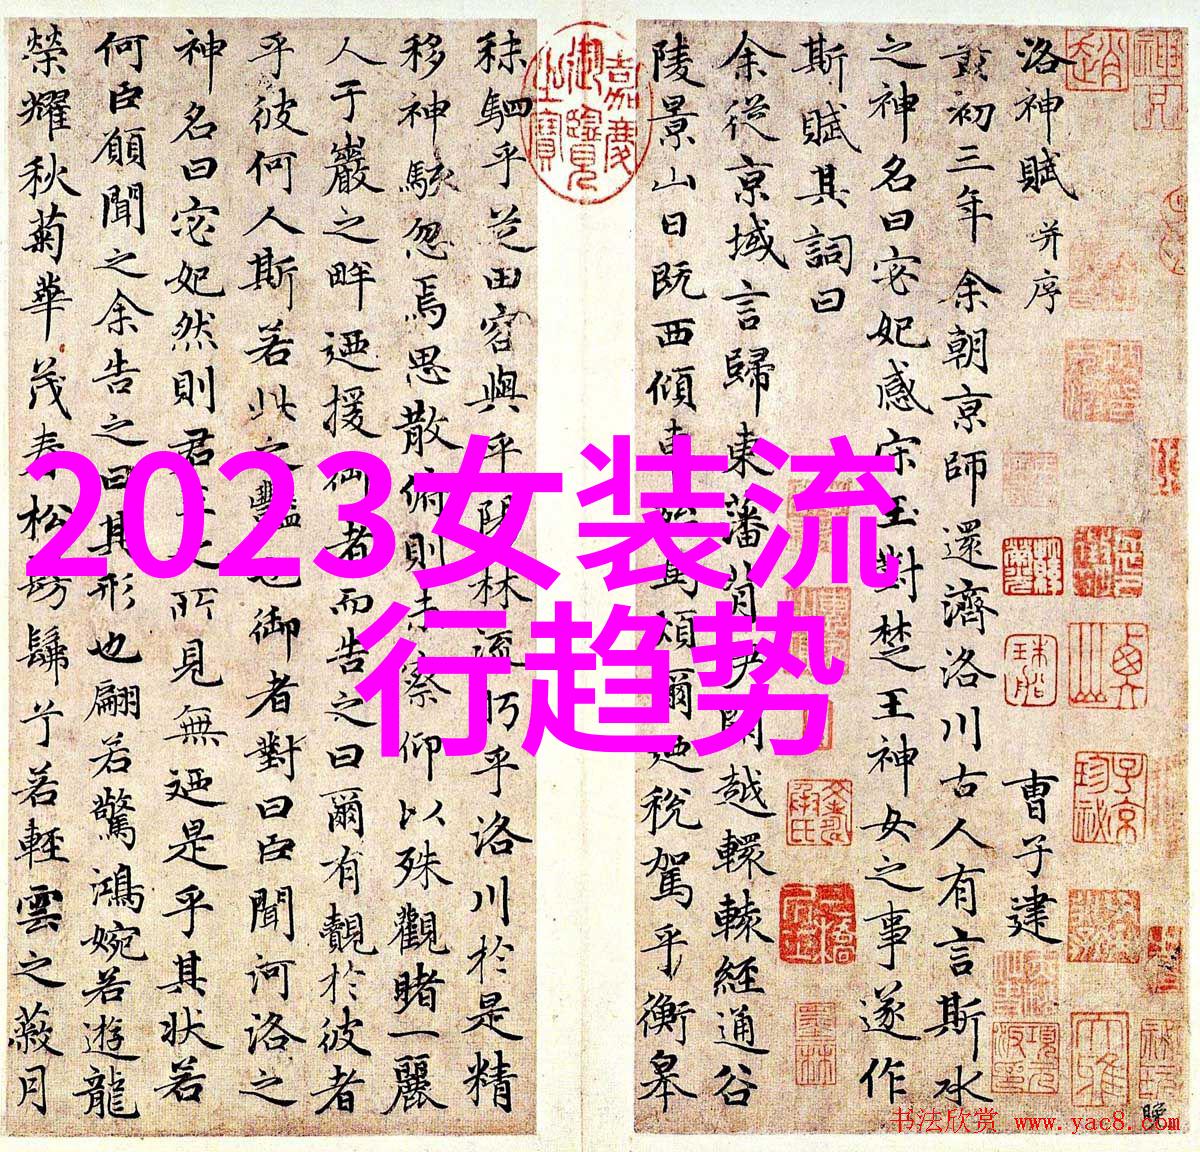 洛神賦 并序 曹子建
黃初三年余朝京師還濟洛川古人有言斯水
之神名曰宓妃感宋玉對楚王神女之事遂作
斯賦其詞曰
余從京域言歸東藩背尹闕越轘轅經通谷
陵景山日既西傾車殆馬煩爾迺稅駕乎衡皋
秣駟乎芝田容與乎陽林流眄乎洛川於是精
移神駭忽焉思散俯則未察仰以殊觀睹一麗
人于巖之畔迺援御者而告之曰爾有覿於彼者
乎彼何人斯若此之豔也御者對曰臣聞河洛之
神名曰宓妃然則君王之所見無迺是乎其狀若
何臣願聞之余告之曰其形也翩若驚鴻婉若遊龍
榮耀秋菊華茂春松髣髴兮若輕雲之蔽月
嘉慶御覽之寶
2023女装流
行趋势
书法欣赏 www.yac8.com